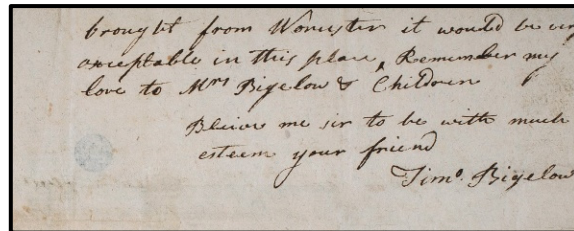 brought from Worcester it would be very
acceptable in this place, Remember my
love to Mrs Bigelow & Children
Believe me sir to be with much
esteem your friend
Timo. Bigelow